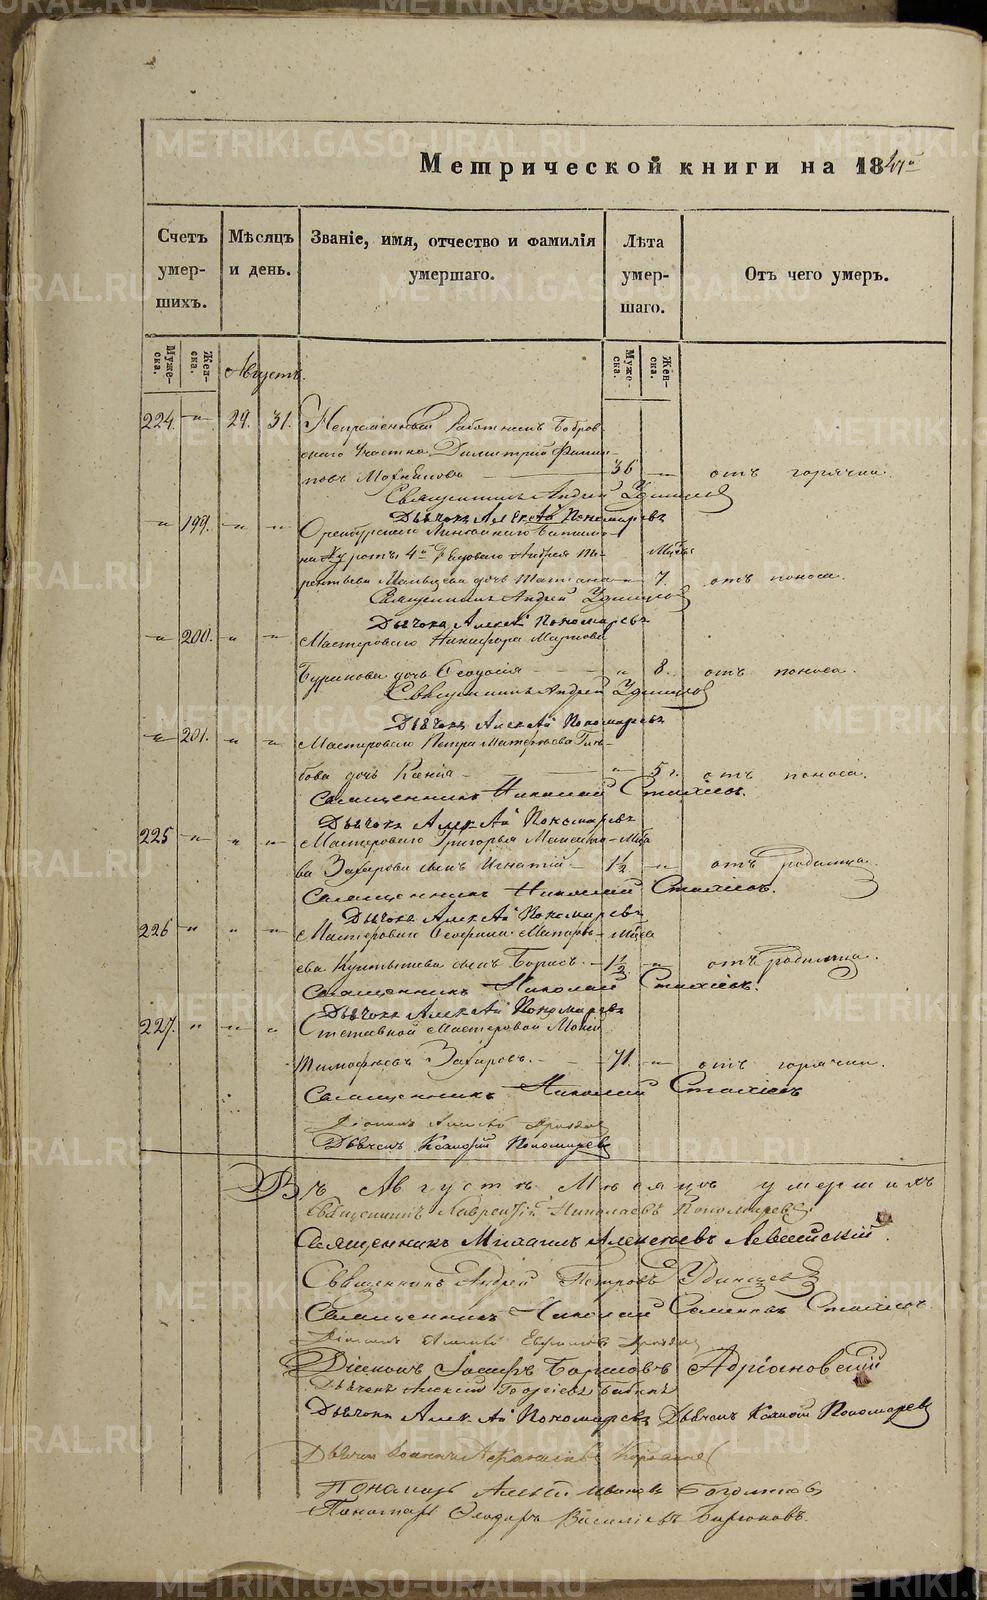 Метрической книги на 18
Счетъ умер- шихъ.
Мѣсяцъ и день.
Званіе, имя, отчество и фамилія умершаго.
Лѣта умер- шаго.
Отъ чего умеръ.
Муже- ска.
Жен- ска.
Муже- ска.
Жен- ска.
Августъ.
224. " 29. 31. Непременный Работникъ Бобров-
скаго Участка Димитрій Филип-
повъ 36 " отъ горячки.
Священникъ Андрей Удинцовъ
Дьячокъ Алексѣй Пономаревъ
" 199. " " Оренбургскаго Линейнаго Баталіо-
на № роты 4й Андрея Те-
рентьева Мальцева дочь Татіана " 7. отъ поноса.
Священникъ Андрей Удинцовъ
Дьячокъ Алексѣй Пономаревъ
" 200. " " Мастероваго Никифора Маркова
дочь Ѳеодосія " 8. отъ поноса.
Священникъ Андрей Удинцовъ
Дьячокъ Алексѣй Пономаревъ
" 201. " " Мастероваго Петра Матвѣева
бова дочь Ксенія " 5 отъ поноса.
Священникъ Николай Стахіевъ.
Дьячокъ Алексѣй Пономаревъ
225 " " " Мастероваго Григорья
ва Захарова сынъ Игнатій 1½ " отъ родимца.
Священникъ Николай Стахіевъ.
Дьячокъ Алексѣй Пономаревъ
226 " " " Мастероваго
ева сынъ Борисъ. 1½ " отъ родимца.
Священникъ Николай Стахіевъ.
Дьячокъ Алексѣй Пономаревъ
227. " " " Отставной Мастеровой
Тимофѣевъ Захаровъ. 71. " отъ горячки.
Священникъ Николай Стахіевъ
Діаконъ Алексѣй
Дьячекъ Пономаревъ
Въ Августѣ Мѣсяцѣ умершихъ
Священникъ Лаврентій Николаевъ Пономаревъ
Священникъ Михаилъ Алексѣевъ Левитскій.
Священникъ Андрей Петровъ Удинцевъ
Священникъ Николай Семеновъ Стахіевъ.
Діаконъ Алексѣй
Діаконъ Іосифъ Борисовъ Адріановскій
Дьячекъ Алексѣй Георгіевъ Бабинъ
Дьячокъ Алексѣй Пономаревъ Дьячекъ Пономаревъ
Дьячекъ
Пономарь Алексѣй Ивановъ
Пономарь Ѳеодоръ Василіевъ Бирюковъ.
METRIKI.GASO-URAL.RU